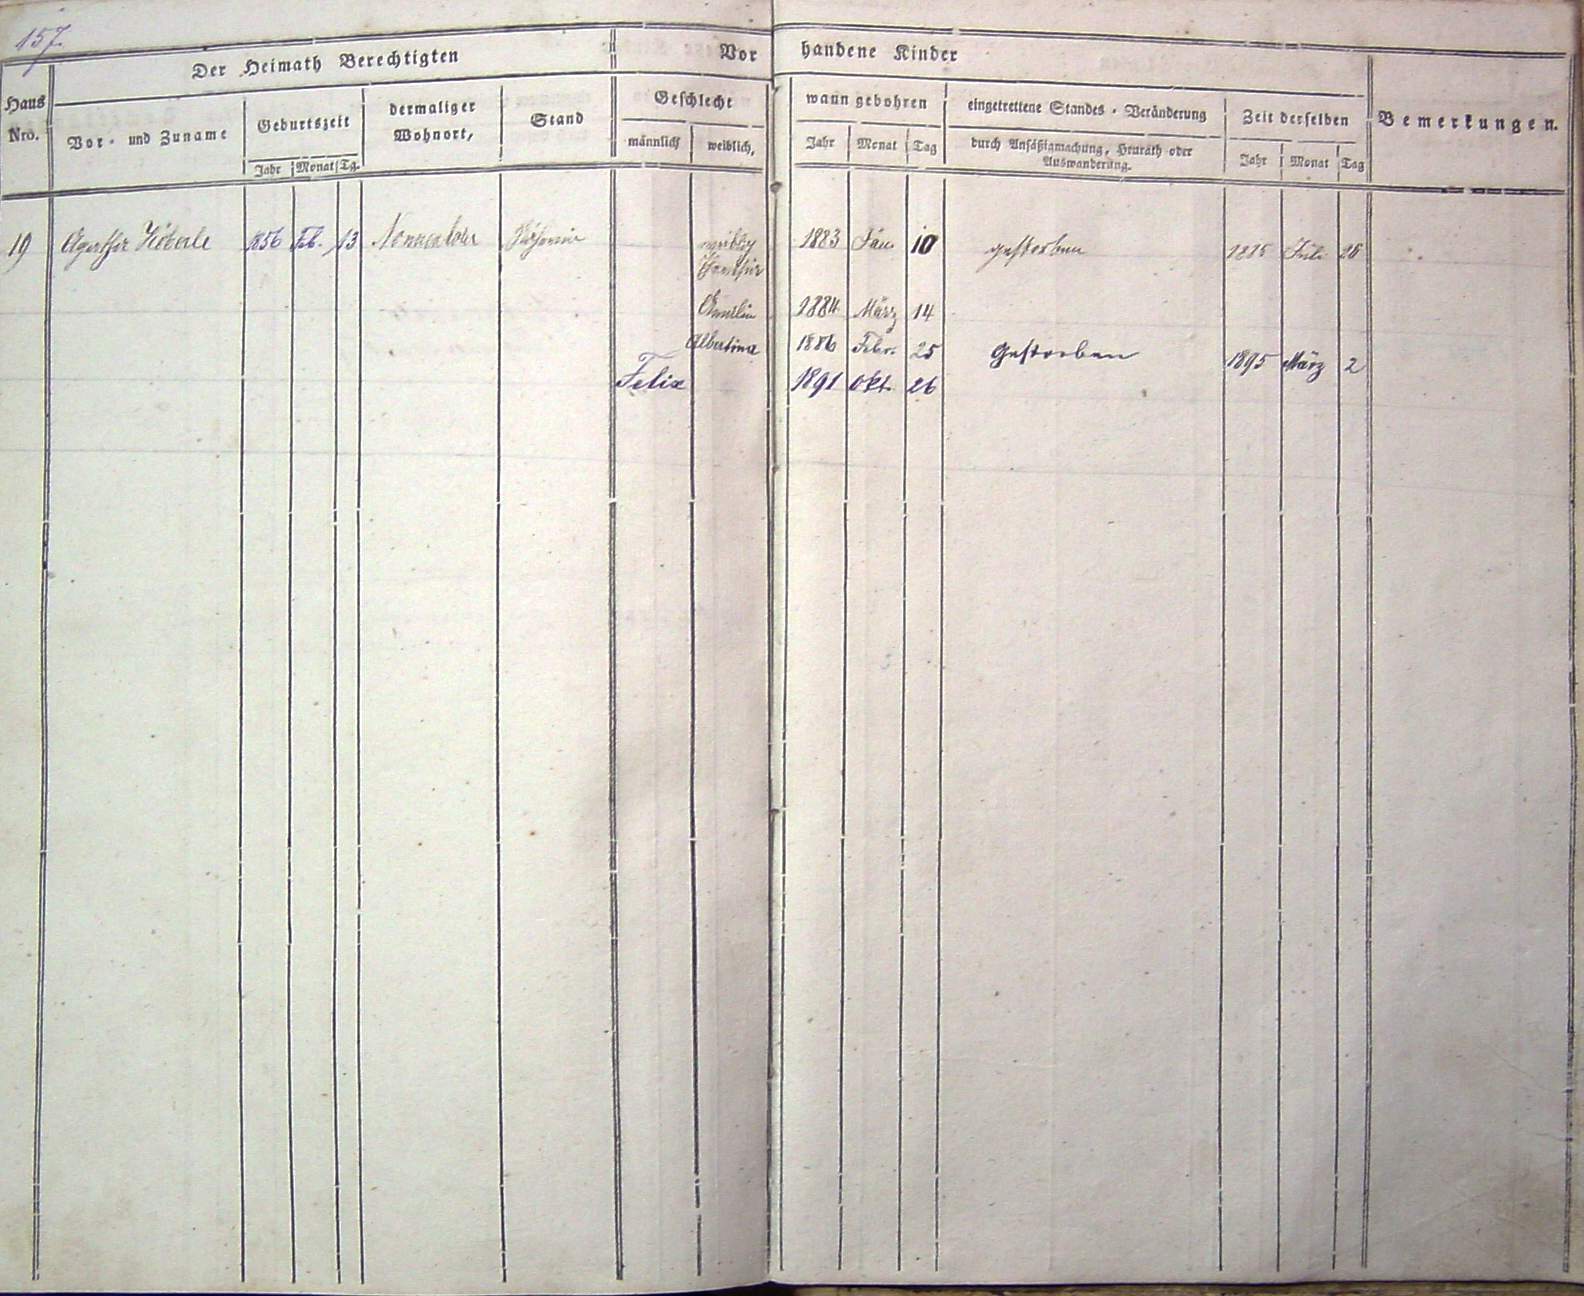 157.
Der Heimath Berechtigten
Vor handene Kinder
Haus Nro.
Vor- und Zuname
Geburtszeit
Jahr Monat Tg.
dermaliger Wohnort,
Stand
Geschlecht
männlich weiblich,
wann gebohren
Jahr Monat Tag
eingetrettene Standes-Veränderung
durch Ansäßigmachung, Heurath oder
Auswanderung.
Zeit derselben
Jahr Monat Tag
Bemerkungen.
19 Agatha Heberle 1856 Feb. 13 1883 Jän. 10 gestorben 1885 Juli
1884 März 14
Albertina 1886 Febr. 25 Gestorben 1895 März 2
Felix 1891 Okt. 26